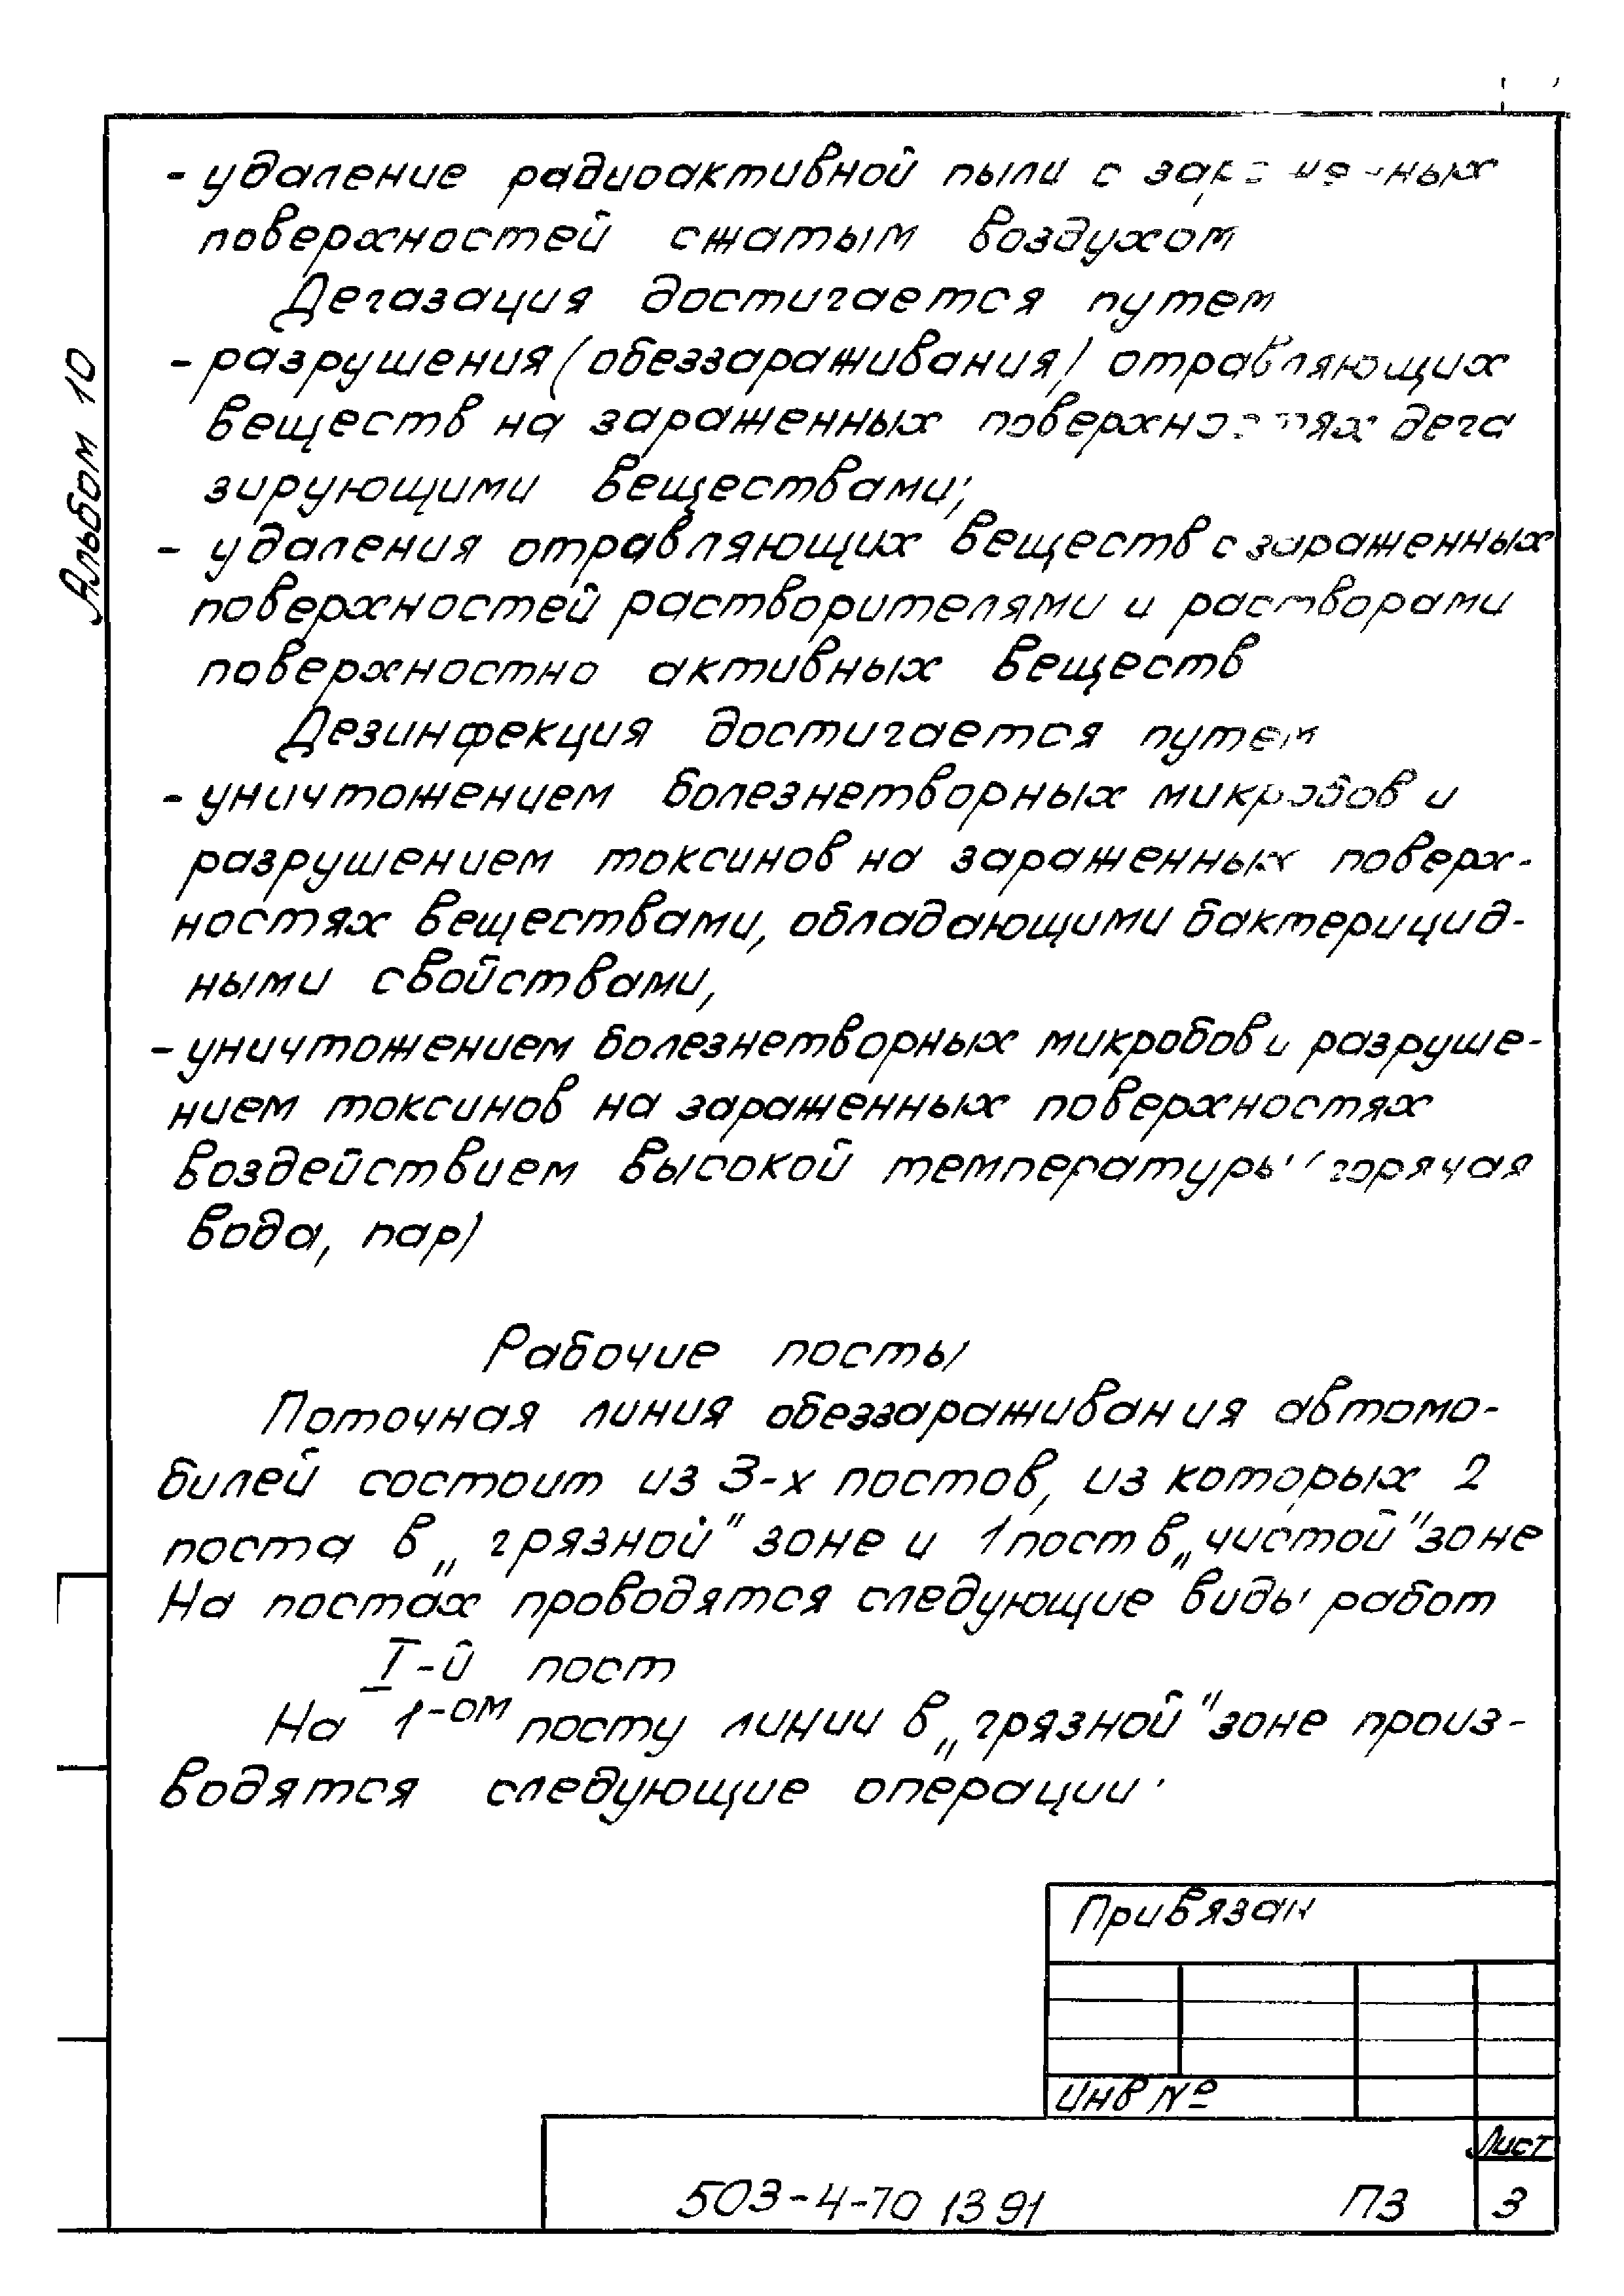 Альбом 10
- удаление радиоактивной пыли с
поверхностей сжатым воздухом
Дегазация достигается путем
- разрушения (обеззараживания) отравляющих
веществ на зараженных поверхностях дега
зирующими веществами;
- удаления отравляющих веществ с зараженных
поверхностей растворителями и растворами
поверхностно активных веществ
Дезинфекция достигается путем
- уничтожением болезнетворных микробов и
разрушением токсинов на зараженных поверх-
ностях веществами, обладающими бактерицид-
ными свойствами,
- уничтожением болезнетворных микробов и разруше-
нием токсинов на зараженных поверхностях
воздействием высокой температуры (горячая
вода, пар)
Рабочие посты
Поточная линия обеззараживания автомо-
билей состоит из 3-х постов, из которых 2
поста в „грязной" зоне и 1 пост в „чистой" зоне
На постах проводятся следующие виды работ
I-й пост
На 1-ом посту линии в „грязной" зоне произ-
водятся следующие операции:
Привязан
Инв №
Лист
503-4-70 13 91 ПЗ 3